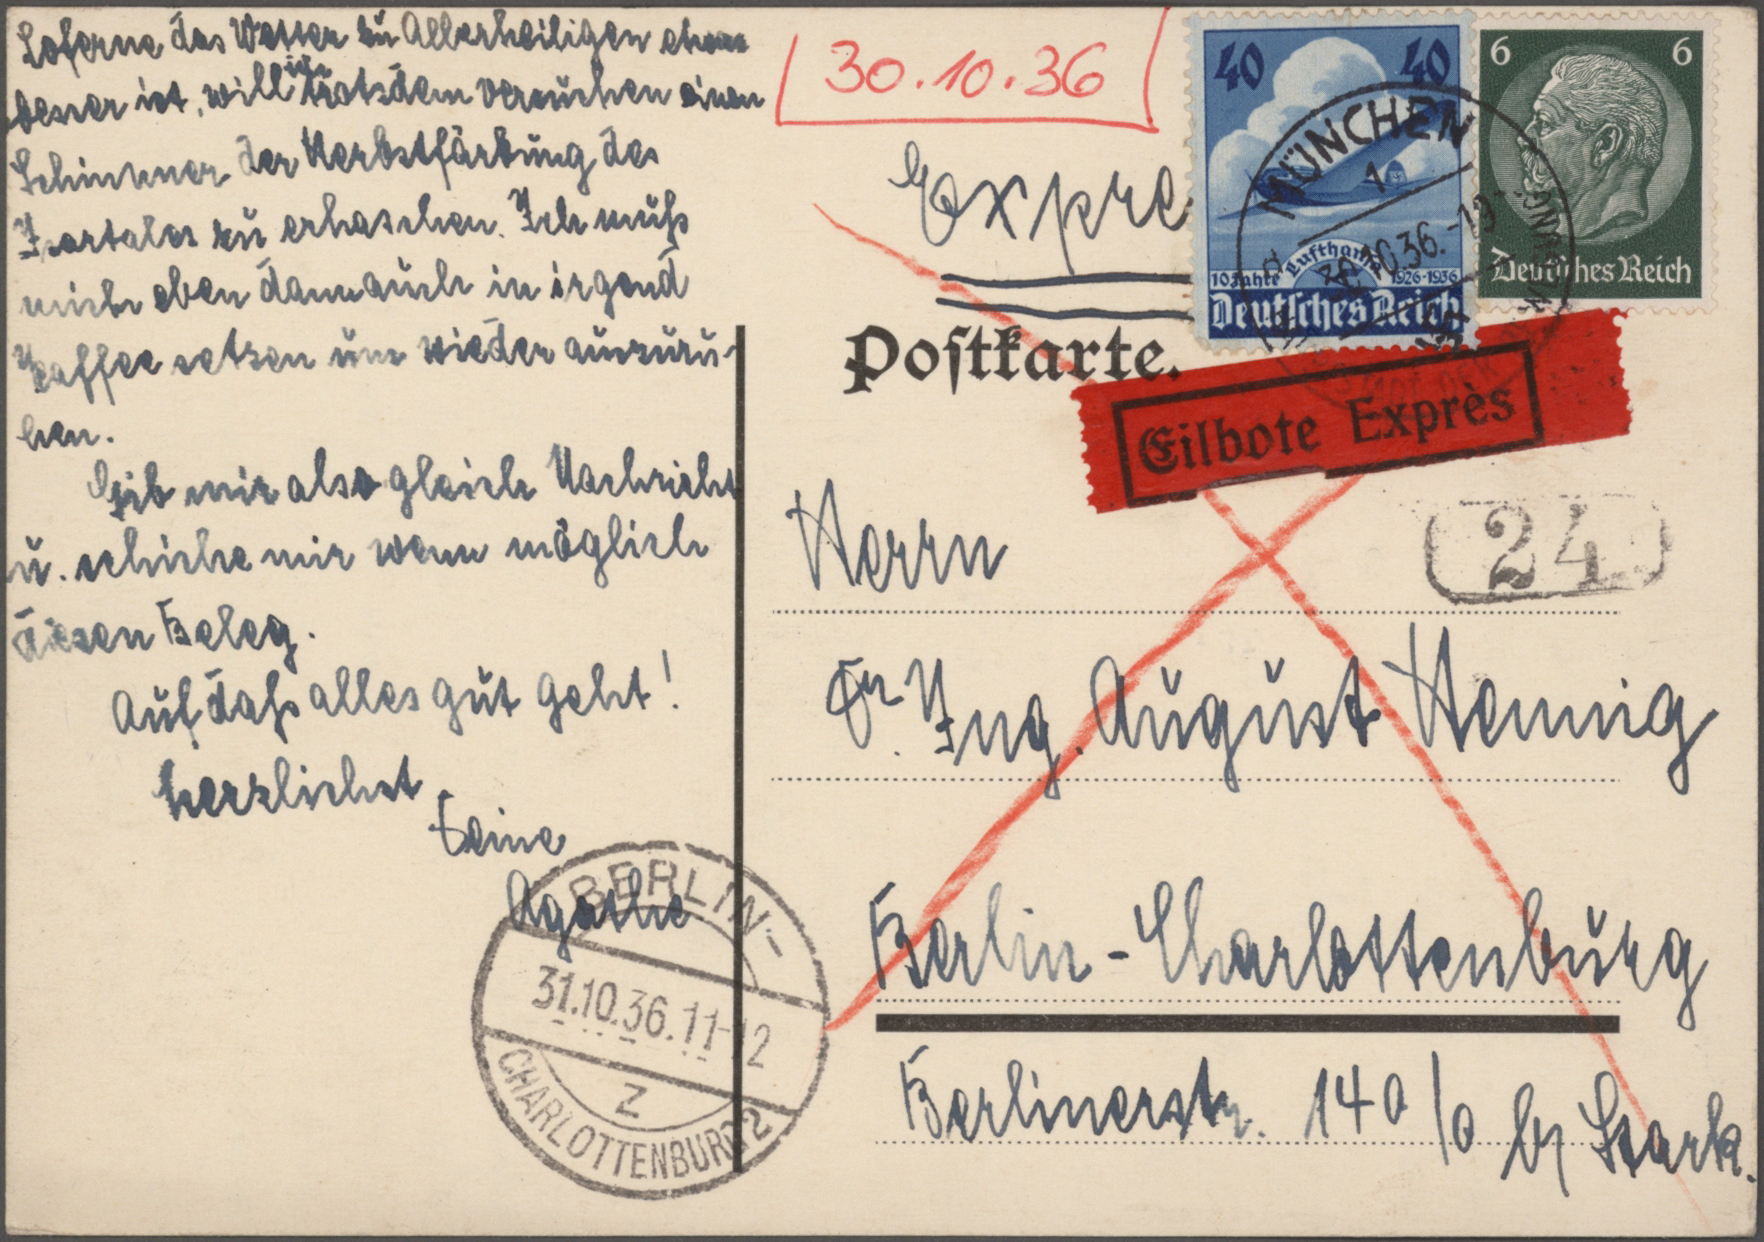 Soferne das Wetter zu Allerheiligen etwas
besser ist, will ich trotzdem versuchen einen
Schimmer der Herbstfärbung des
Isartales zu erhaschen. Ich muß
mich eben dann auch in irgend
Kaffee setzen um wieder auszuru-
hen.
Gib mir also gleich Nachricht
u. schicke mir wenn möglich
diesen Beleg.
Auf daß alles gut geht!
herzlichst
Deine
Agathe
BERLIN-
31.10.36.11-12
Z
CHARLOTTENBURG 2
30.10.36
Expre
40 40
10 Jahre Lufthansa 1926-1936
Deutsches Reich
6 6
Deutsches Reich
MÜNCHEN
1
30.10.36.-19
Postkarte.
Eilbote Exprès
24
Herrn
Dr. Ing. August Hennig
Berlin-Charlottenburg
Berlinerstr. 140/0 by Stark.